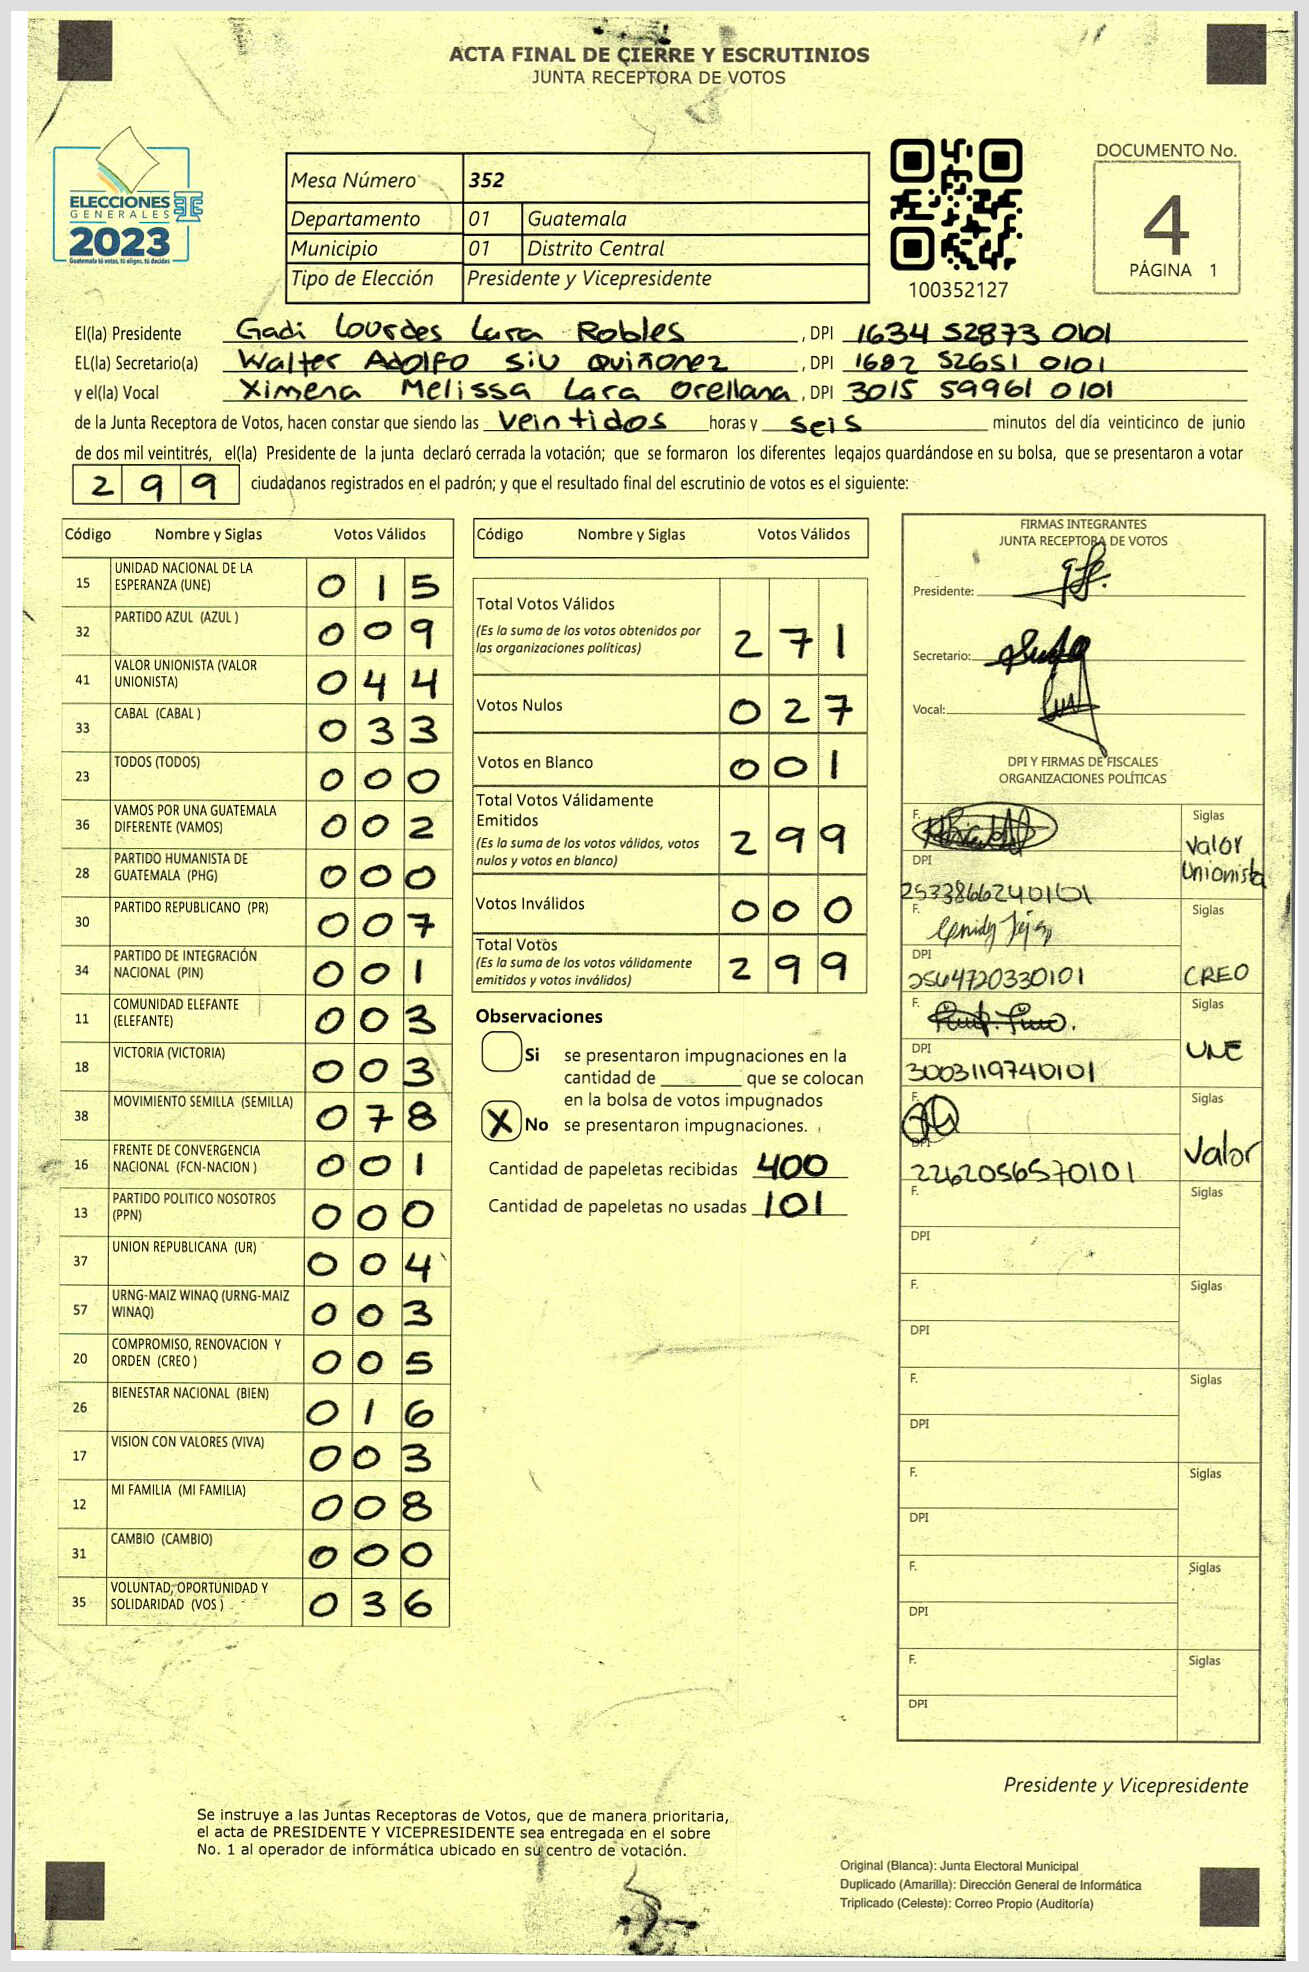 ACTA FINAL DE CIERRE Y ESCRUTINIOS
JUNTA RECEPTORA DE VOTOS
ELECCIONES
GENERALES
2023
Guatemala tú votas, tú eliges, tú decides
Mesa Número 352
Departamento 01 Guatemala
Municipio 01 Distrito Central
Tipo de Elección Presidente y Vicepresidente
100352127
DOCUMENTO No.
4
PÁGINA 1
El(la) Presidente Gadi Lourdes Lara Robles, DPI 1634 52873 0101
EL(la) Secretario(a) Walter Adolfo Siu Quiñonez, DPI 1682 52651 0101
y el(la) Vocal Ximena Melissa Lara Orellana, DPI 3015 59961 0101
de la Junta Receptora de Votos, hacen constar que siendo las veintidos horas y seis minutos del día veinticinco de junio
de dos mil veintitrés, el(la) Presidente de la junta declaró cerrada la votación; que se formaron los diferentes legajos guardándose en su bolsa, que se presentaron a votar
299 ciudadanos registrados en el padrón; y que el resultado final del escrutinio de votos es el siguiente:
Código Nombre y Siglas Votos Válidos
15 UNIDAD NACIONAL DE LA ESPERANZA (UNE) 015
32 PARTIDO AZUL (AZUL ) 009
41 VALOR UNIONISTA (VALOR UNIONISTA) 044
33 CABAL (CABAL ) 033
23 TODOS (TODOS) 000
36 VAMOS POR UNA GUATEMALA DIFERENTE (VAMOS) 002
28 PARTIDO HUMANISTA DE GUATEMALA (PHG) 000
30 PARTIDO REPUBLICANO (PR) 007
34 PARTIDO DE INTEGRACIÓN NACIONAL (PIN) 001
11 COMUNIDAD ELEFANTE (ELEFANTE) 003
18 VICTORIA (VICTORIA) 003
38 MOVIMIENTO SEMILLA (SEMILLA) 078
16 FRENTE DE CONVERGENCIA NACIONAL (FCN-NACION ) 001
13 PARTIDO POLITICO NOSOTROS (PPN) 000
37 UNION REPUBLICANA (UR) 004
57 URNG-MAIZ WINAQ (URNG-MAIZ WINAQ) 003
20 COMPROMISO, RENOVACION Y ORDEN (CREO ) 005
26 BIENESTAR NACIONAL (BIEN) 016
17 VISION CON VALORES (VIVA) 003
12 MI FAMILIA (MI FAMILIA) 008
31 CAMBIO (CAMBIO) 000
35 VOLUNTAD, OPORTUNIDAD Y SOLIDARIDAD (VOS ) 036
Código Nombre y Siglas Votos Válidos
Total Votos Válidos
(Es la suma de los votos obtenidos por
las organizaciones políticas) 271
Votos Nulos 027
Votos en Blanco 001
Total Votos Válidamente
Emitidos
(Es la suma de los votos válidos, votos
nulos y votos en blanco) 299
Votos Inválidos 000
Total Votos
(Es la suma de los votos válidamente
emitidos y votos inválidos) 299
Observaciones
Si se presentaron impugnaciones en la
cantidad de ________ que se colocan
en la bolsa de votos impugnados
X No se presentaron impugnaciones.
Cantidad de papeletas recibidas 400
Cantidad de papeletas no usadas 101
FIRMAS INTEGRANTES
JUNTA RECEPTORA DE VOTOS
Presidente:
Secretario:
Vocal:
DPI Y FIRMAS DE FISCALES
ORGANIZACIONES POLÍTICAS
F. Siglas
Valor Unionista
DPI
2533866240101
F. Siglas
DPI
2564720330101 CREO
F. Siglas
DPI UNE
3003119740101
F. Siglas
DPI Valor
2262056570101
F. Siglas
DPI
F. Siglas
DPI
F. Siglas
DPI
F. Siglas
DPI
F. Siglas
DPI
F. Siglas
DPI
Presidente y Vicepresidente
Se instruye a las Juntas Receptoras de Votos, que de manera prioritaria,
el acta de PRESIDENTE Y VICEPRESIDENTE sea entregada en el sobre
No. 1 al operador de informática ubicado en su centro de votación.
Original (Blanca): Junta Electoral Municipal
Duplicado (Amarilla): Dirección General de Informática
Triplicado (Celeste): Correo Propio (Auditoría)